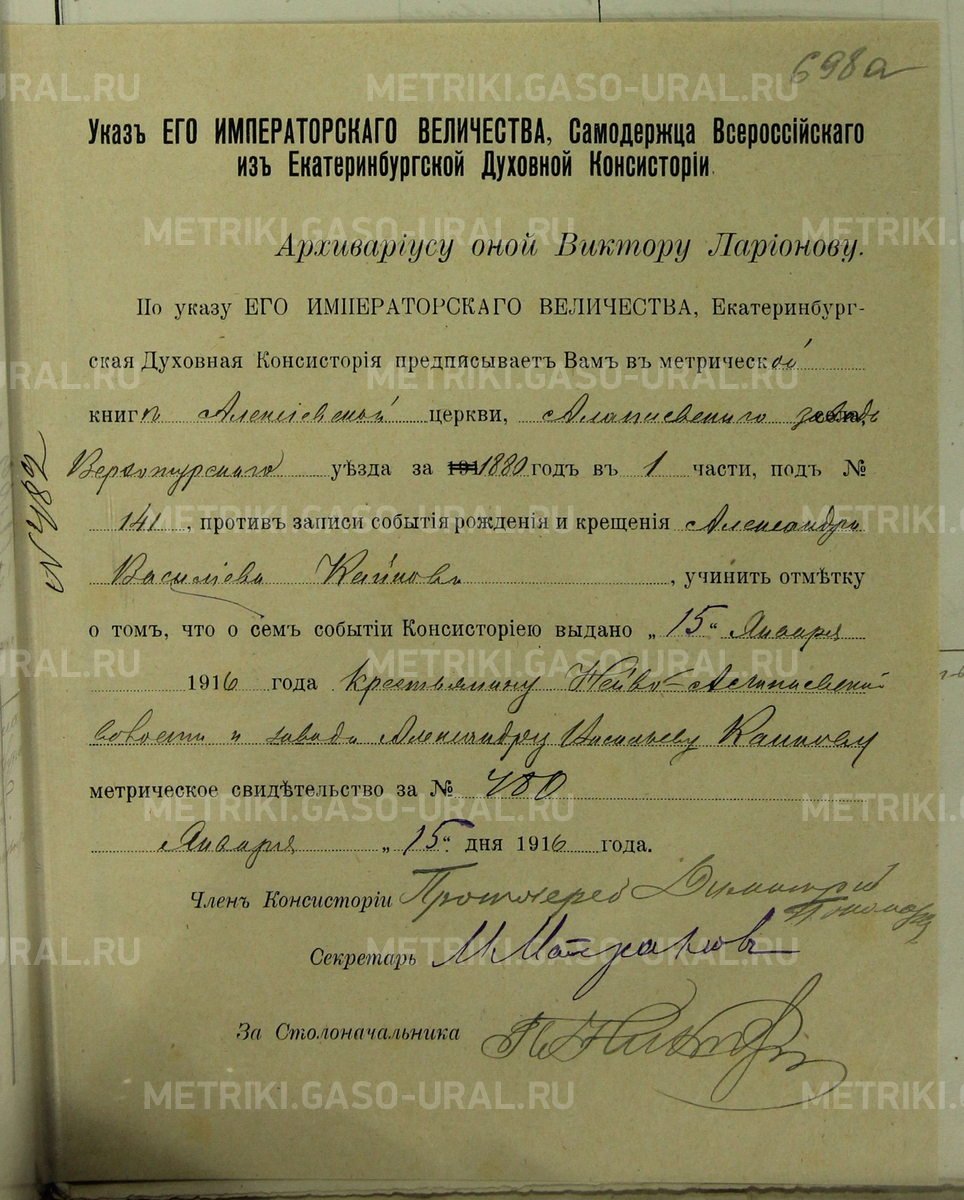 698а
Указъ ЕГО ИМПЕРАТОРСКАГО ВЕЛИЧЕСТВА, Самодержца Всероссійскаго
изъ Екатеринбургской Духовной Консисторіи.
Архиваріусу оной Виктору Ларіонову.
По указу ЕГО ИМПЕРАТОРСКАГО ВЕЛИЧЕСТВА, Екатеринбург-
ская Духовная Консисторія предписываетъ Вамъ въ метрической
книгѣ Алексіевской церкви, Алапаевскаго завода
Верхотурскаго уѣзда за 1880 годъ въ 1 части, подъ №
141, противъ записи событія рожденія и крещенія Александра
Василіева Каинова, учинить отмѣтку
о томъ, что о семъ событіи Консисторіею выдано „15“ Января
1916 года крестьянину Нейво-Алапаевской
волости и завода Александру Васильеву Каинову
метрическое свидѣтельство за № 480
Января „15“ дня 1916 года.
Членъ Консисторіи Протоіерей Димитрій
Секретарь
За Столоначальника
№ 482
METRIKI.GASO-URAL.RU